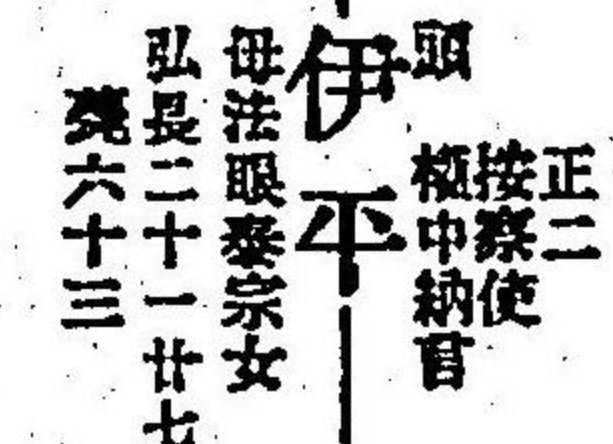 正二
按察使
頭 權中納言
伊平
母法眼泰宗女
弘長二十一廿七
薨六十三